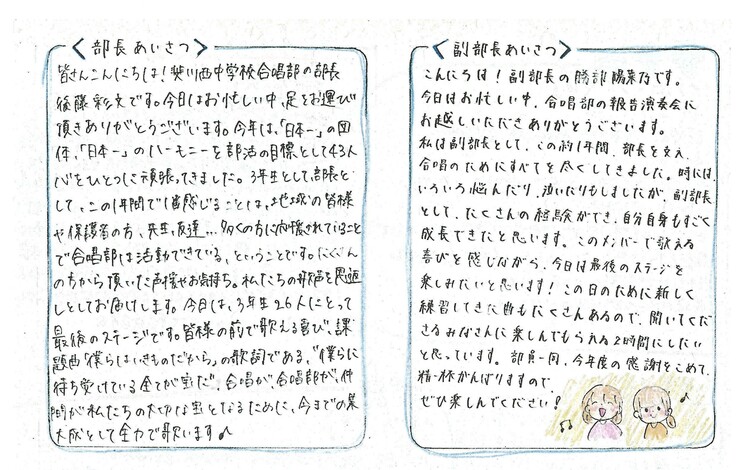 〈部長あいさつ〉
皆さんこんにちは！斐川西中学校合唱部の部長
後藤彩文です。今日はお忙しい中、足をお運び
頂きありがとうございます。今年は、「日本一」の団
体、「日本一」のハーモニーを部活の目標として43人
心をひとつに頑張ってきました。3年生として、部長と
して、この1年間で1番感じることは、地域の皆様
や保護者の方、先生、友達…多くの方に応援されていること
で合唱部は活動できている、ということです。たくさん
の方から頂いた声援やお気持ち。私たちの歌声を恩返
しとしてお届けします。今日は、3年生26人にとって
最後のステージです。皆様の前で歌える喜び、課
題曲「僕らはいきものだから」の歌詞である、“僕らに
待ち受けている全てが宝だ”、合唱が、合唱部が、仲
間が私たちの大切な宝となるために、今までの集
大成として全力で歌います♪
〈副部長あいさつ〉
こんにちは！副部長の勝部陽菜乃です。
今日はお忙しい中、合唱部の報告演奏会に
お越しいただきありがとうございます。
私は副部長として、この約1年間、部長を支え、
合唱のためにすべてを尽くしてきました。時には、
いろいろ悩んだり、泣いたりもしましたが、副部長
として、たくさんの経験ができ、自分自身もすごく
成長できたと思います。このメンバーで歌える
喜びを感じながら、今日は最後のステージを
楽しみたいと思います！この日のために新しく
練習してきた曲もたくさんあるので、聞いてくだ
さるみなさんに楽しんでもらえる2時間にしたい
と思っています。部員一同、今年度の感謝をこめて、
精一杯がんばりますので、
ぜひ楽しんでください！